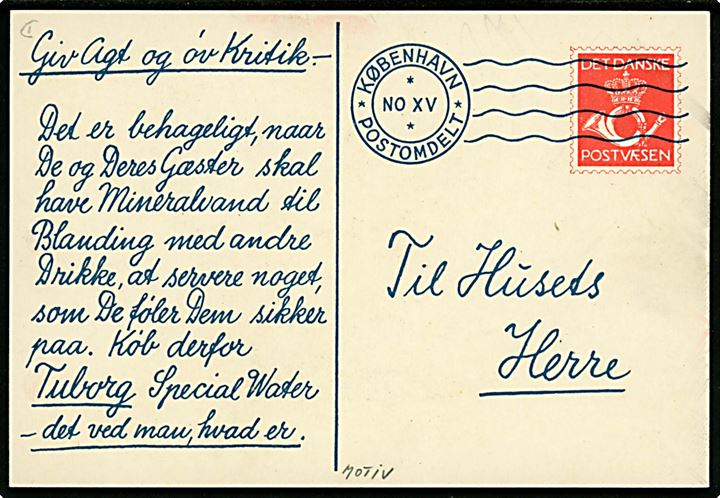 Giv Agt og öv Kritik.-
Det er behageligt, naar
De og Deres Gæster skal
have Mineralvand til
Blanding med andre
Drikke, at servere noget,
som De föler Dem sikker
paa. Köb derfor
Tuborg Special Water
- det ved man, hvad er.
KØBENHAVN
NO XV
POSTOMDELT
DET DANSKE
POSTVÆSEN
Til Husets
Herre
MOTIV